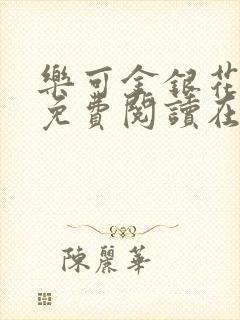 樂可金銀花
免費閱讀在
陳麗華